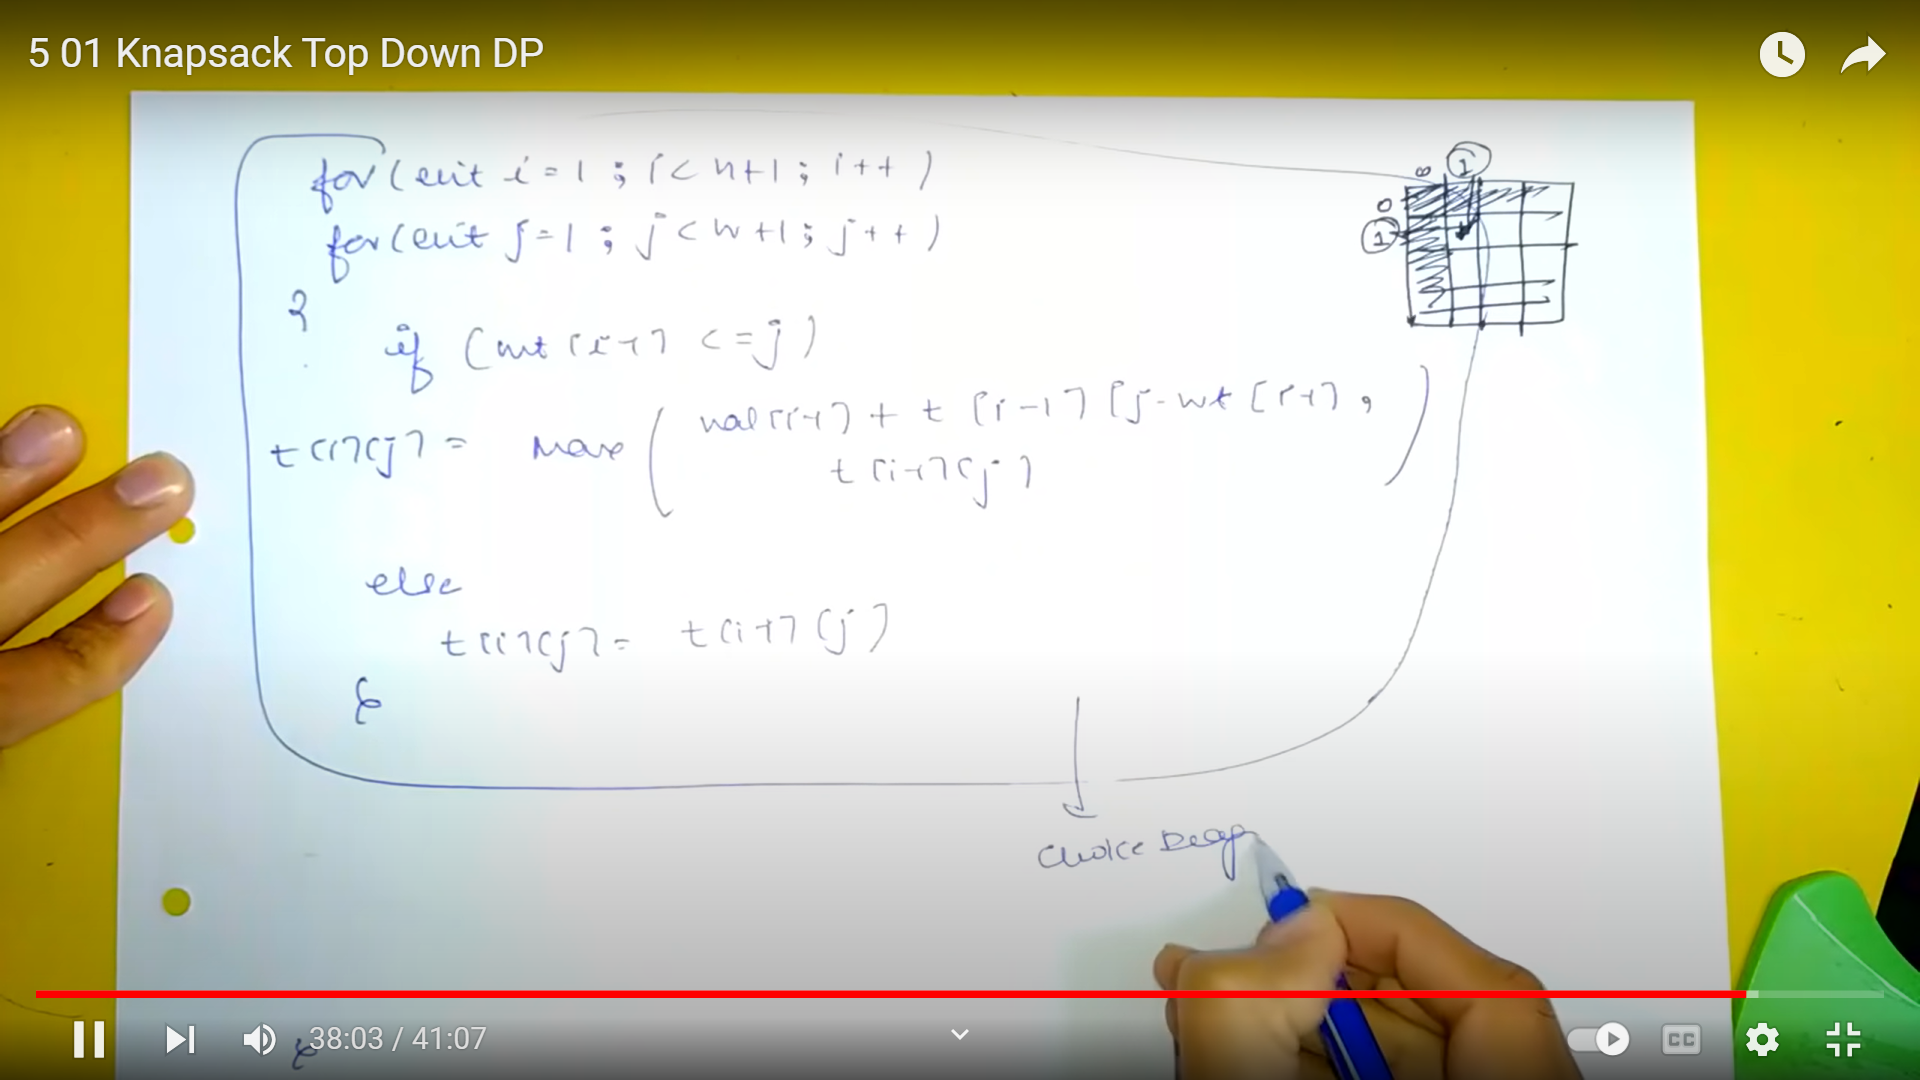 5 01 Knapsack Top Down DP
for(int i=1; i<n+1; i++)
for(int j=1; j<w+1; j++)
{
if (wt[i-1] <=j)
t[i][j] = max( val[i-1] + t[i-1][j-wt[i-1],
t[i-1][j] )
else
t[i][j] = t[i-1][j]
}
0 1
0
1
Choice Diag
38:03 / 41:07
CC